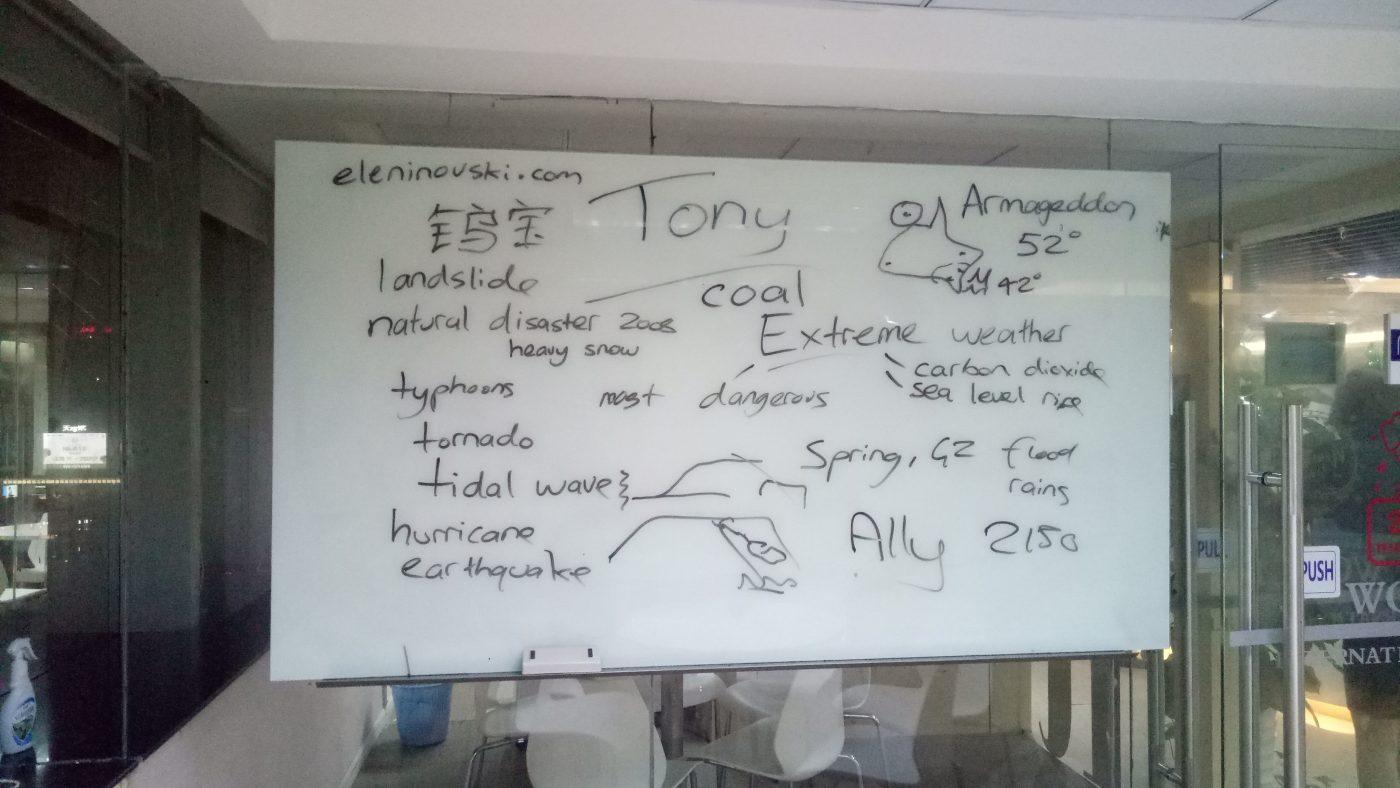 eleninovski.com
钨宝
Tony
Armageddon
52°
42°
landslide
coal
natural disaster 2008
heavy snow
Extreme weather
carbon dioxide
sea level rise
typhoons
most dangerous
tornado
Spring, GZ flood
rains
tidal wave
hurricane
Ally 2150
earthquake
PUSH
PUL
WO
RNAT